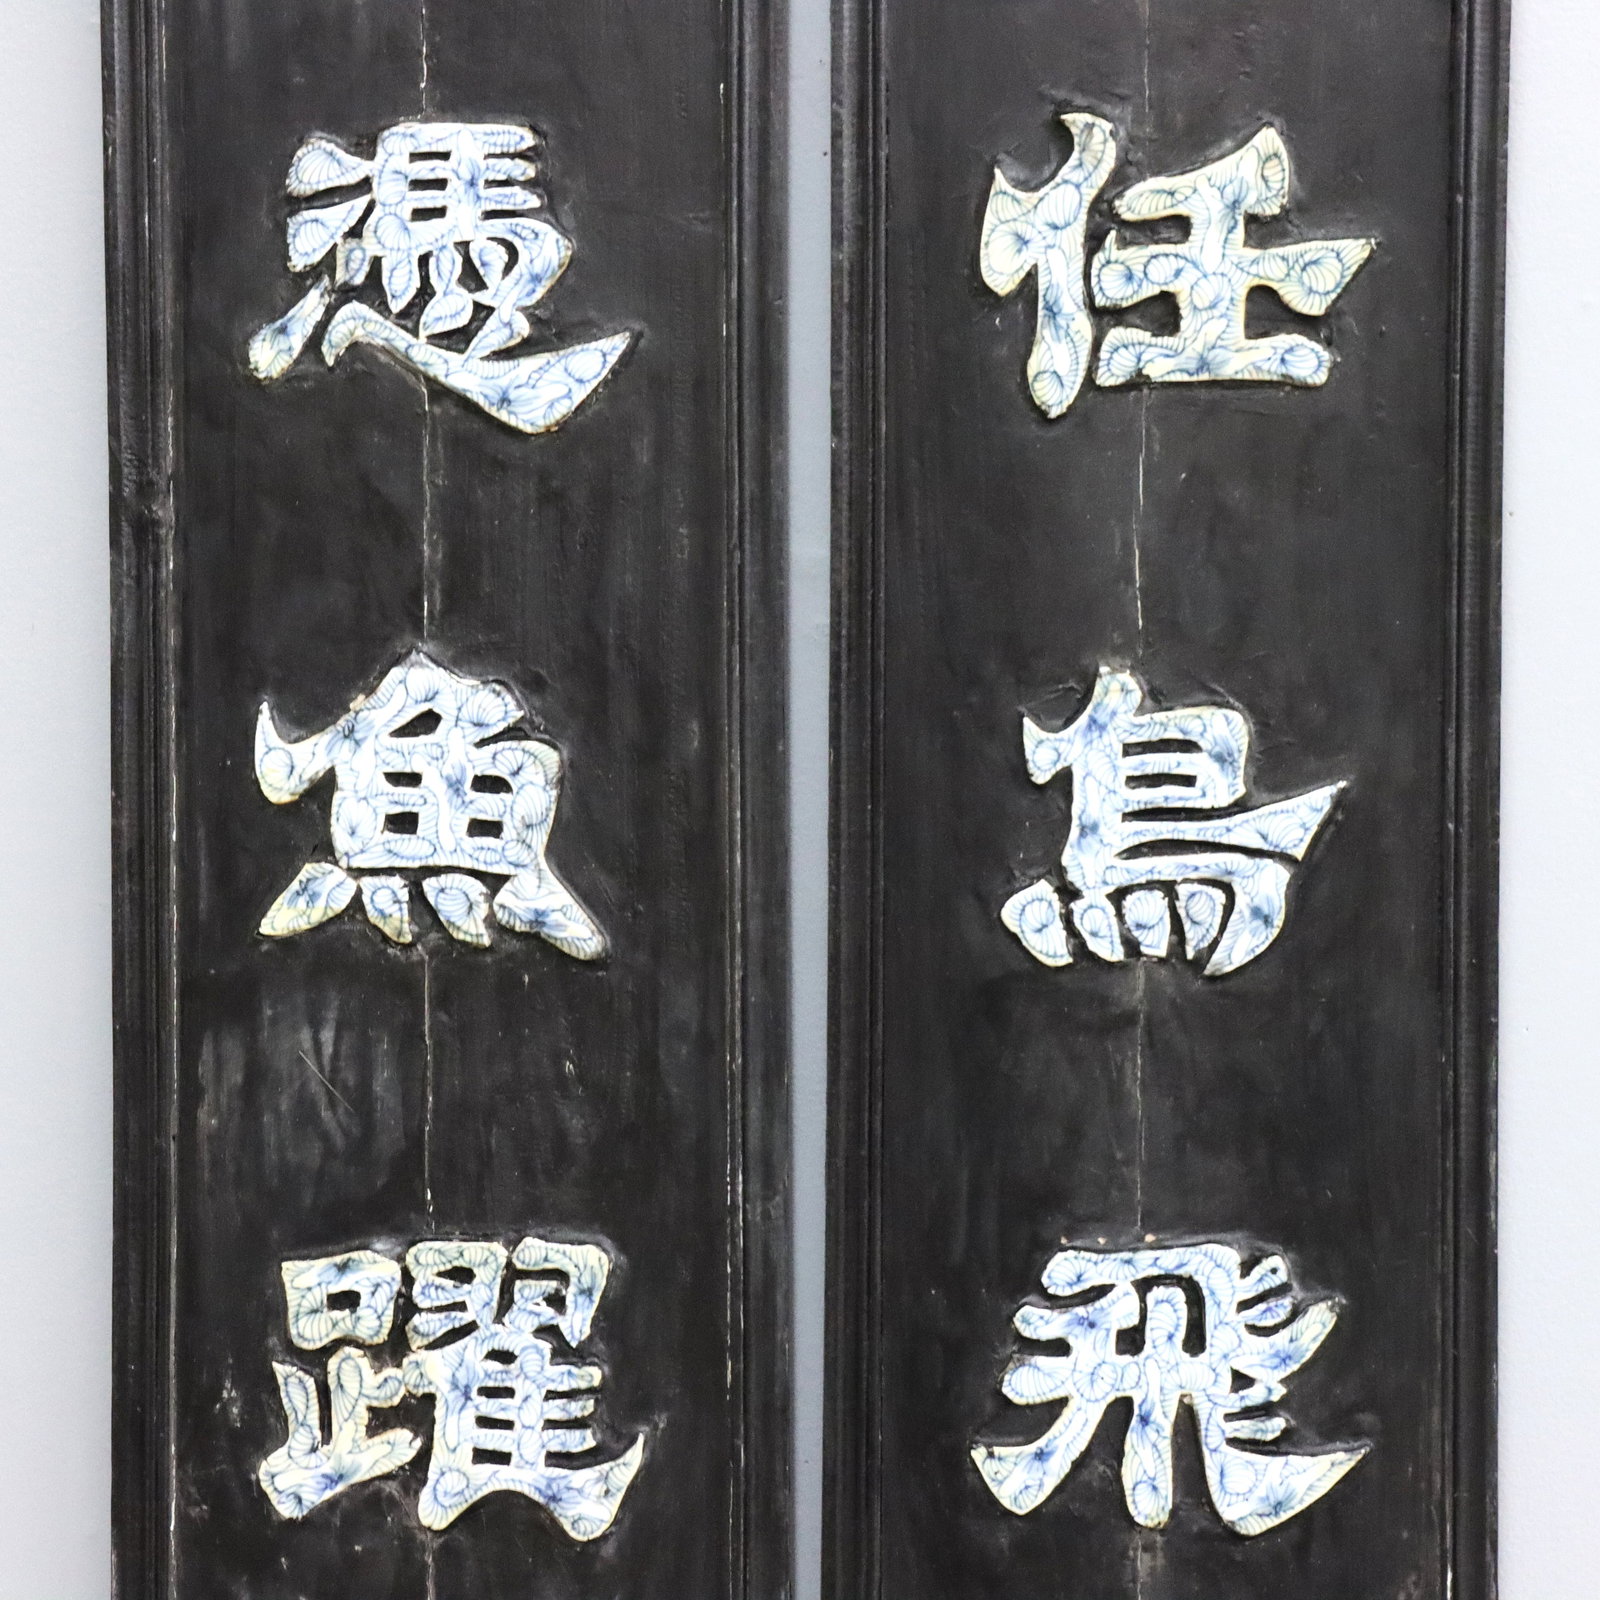 任鳥飛
憑魚躍